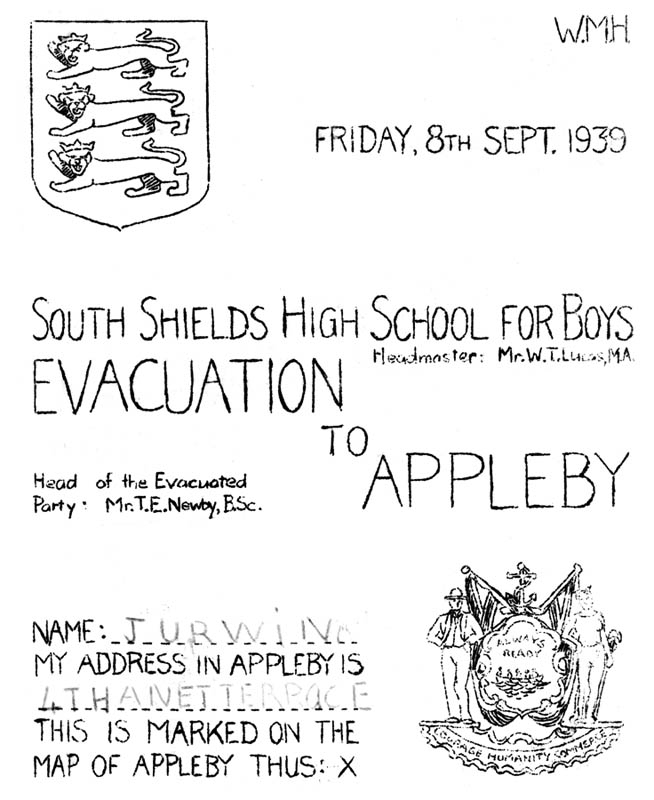 W.M.H.
FRIDAY, 8TH SEPT. 1939
SOUTH SHIELDS HIGH SCHOOL FOR BOYS
Headmaster: Mr. W. T. Lucas, M.A.
EVACUATION
TO
APPLEBY
Head of the Evacuated
Party: Mr. T. E. Newby, B.Sc.
NAME: J URWIN
MY ADDRESS IN APPLEBY IS
4 THANET TERRACE
THIS IS MARKED ON THE
MAP OF APPLEBY THUS: X
ALWAYS
READY
COURAGE HUMANITY COMMERCE